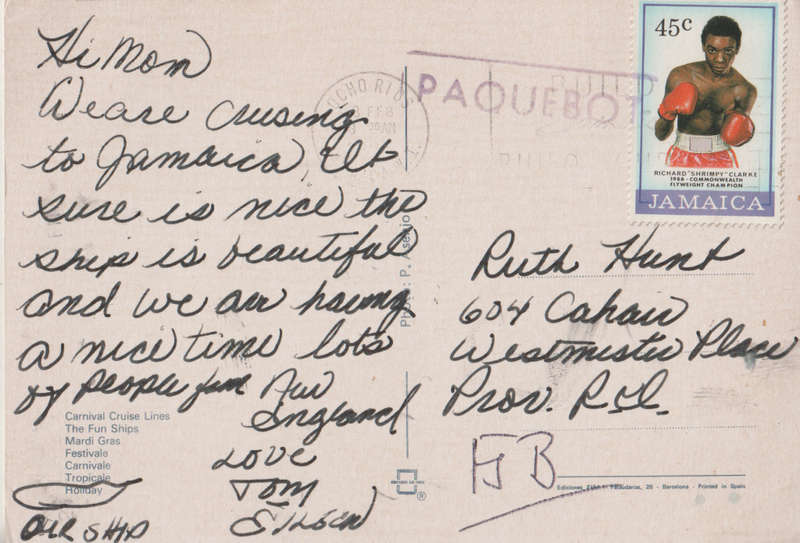 Hi Mom
We are cruising
to Jamaica, It
sure is nice the
ship is beautiful
and we are having
a nice time lots
of people from New
England
Love
Tom
Eileen
Carnival Cruise Lines
The Fun Ships
Mardi Gras
Festivale
Carnivale
Tropicale
Holiday
OUR SHIP
Photo: P. Asensio
OCHO RIOS
FEB
AM
PAQUEBOT
BUILD
45c
RICHARD "SHRIMPY" CLARKE
1986 - COMMONWEALTH
FLYWEIGHT CHAMPION
JAMAICA
Ruth Hunt
604
Westminster Place
Prov. R.I.
B
®
Ediciones 26 - Barcelona - Printed in Spain